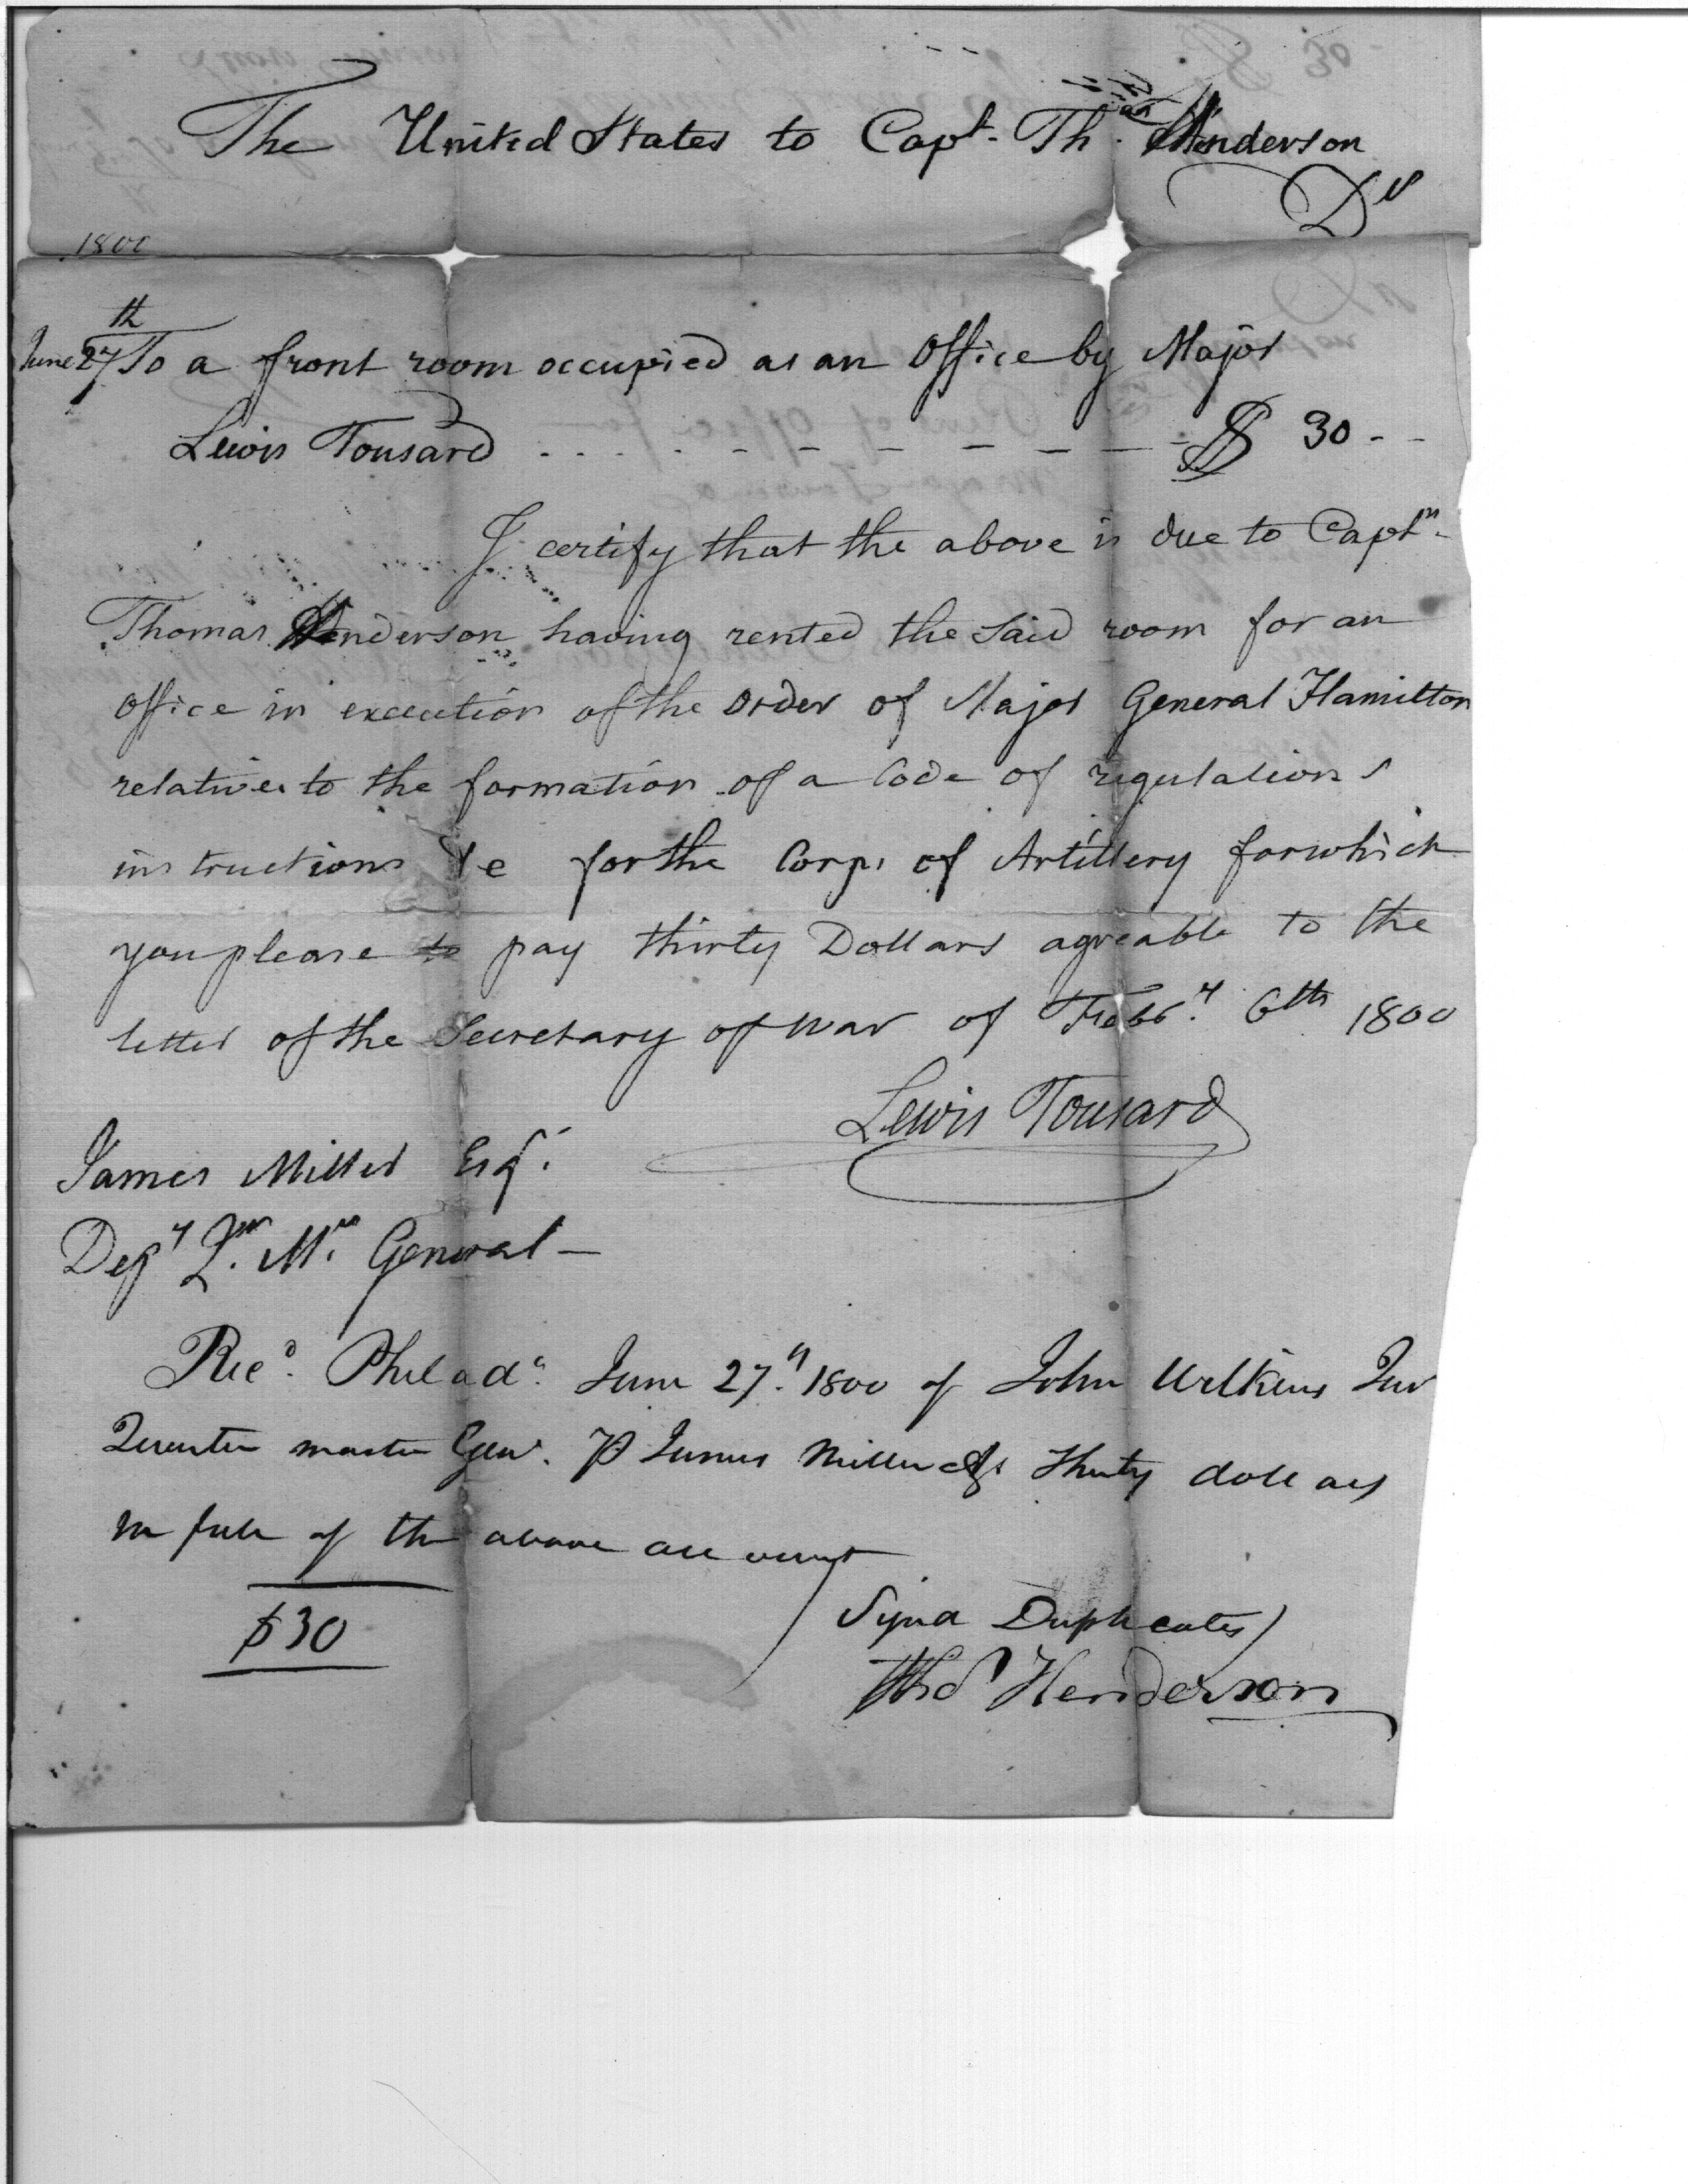 The United States to Capt. Th. Henderson
Dr
1800
June 27th To a front room occupied as an Office by Major
Lewis Tousard . . . . - - - - - - - $ 30 - -
I certify that the above is due to Captn.
Thomas Henderson having rented the said room for an
Office in execution of the Order of Major General Hamilton
relative to the formation of a Code of regulations
instructions &c for the Corps of Artillery for which
you please to pay thirty Dollars agreable to the
letter of the Secretary of War of Feby. 6th 1800
Lewis Tousard
James Miller Esqr.
Depy Qr. Mr. General -
Recd. Philada. June 27th. 1800 of John Wilkins Junr
Quarter master Genl. P James Miller Thirty dollars
in full of the above account
$30
Signd Duplicates
Thos Henderson